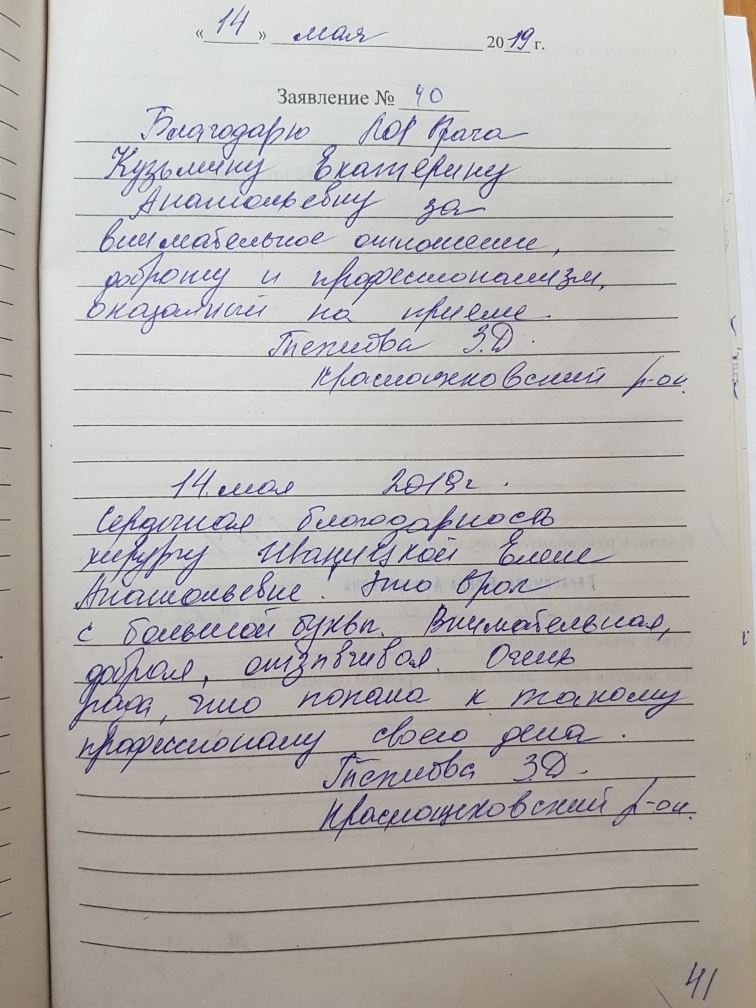 « 14 » мая 2019 г.
Заявление № 40
Благодарю ЛОР врача
Кузьмину Екатерину
Анатольевну за
внимательное отношение,
доброту и профессионализм,
оказанный на приеме.
Теплова З.Д.
Краснощековский р-он.
14 мая 2019г.
Сердечная благодарность
хирургу Иваницкой Елене
Анатольевне. Это врач
с большой буквы. Внимательная,
добрая, отзывчивая. Очень
рада, что попала к такому
профессионалу своего дела.
Теплова З.Д.
Краснощековский р-он.
41